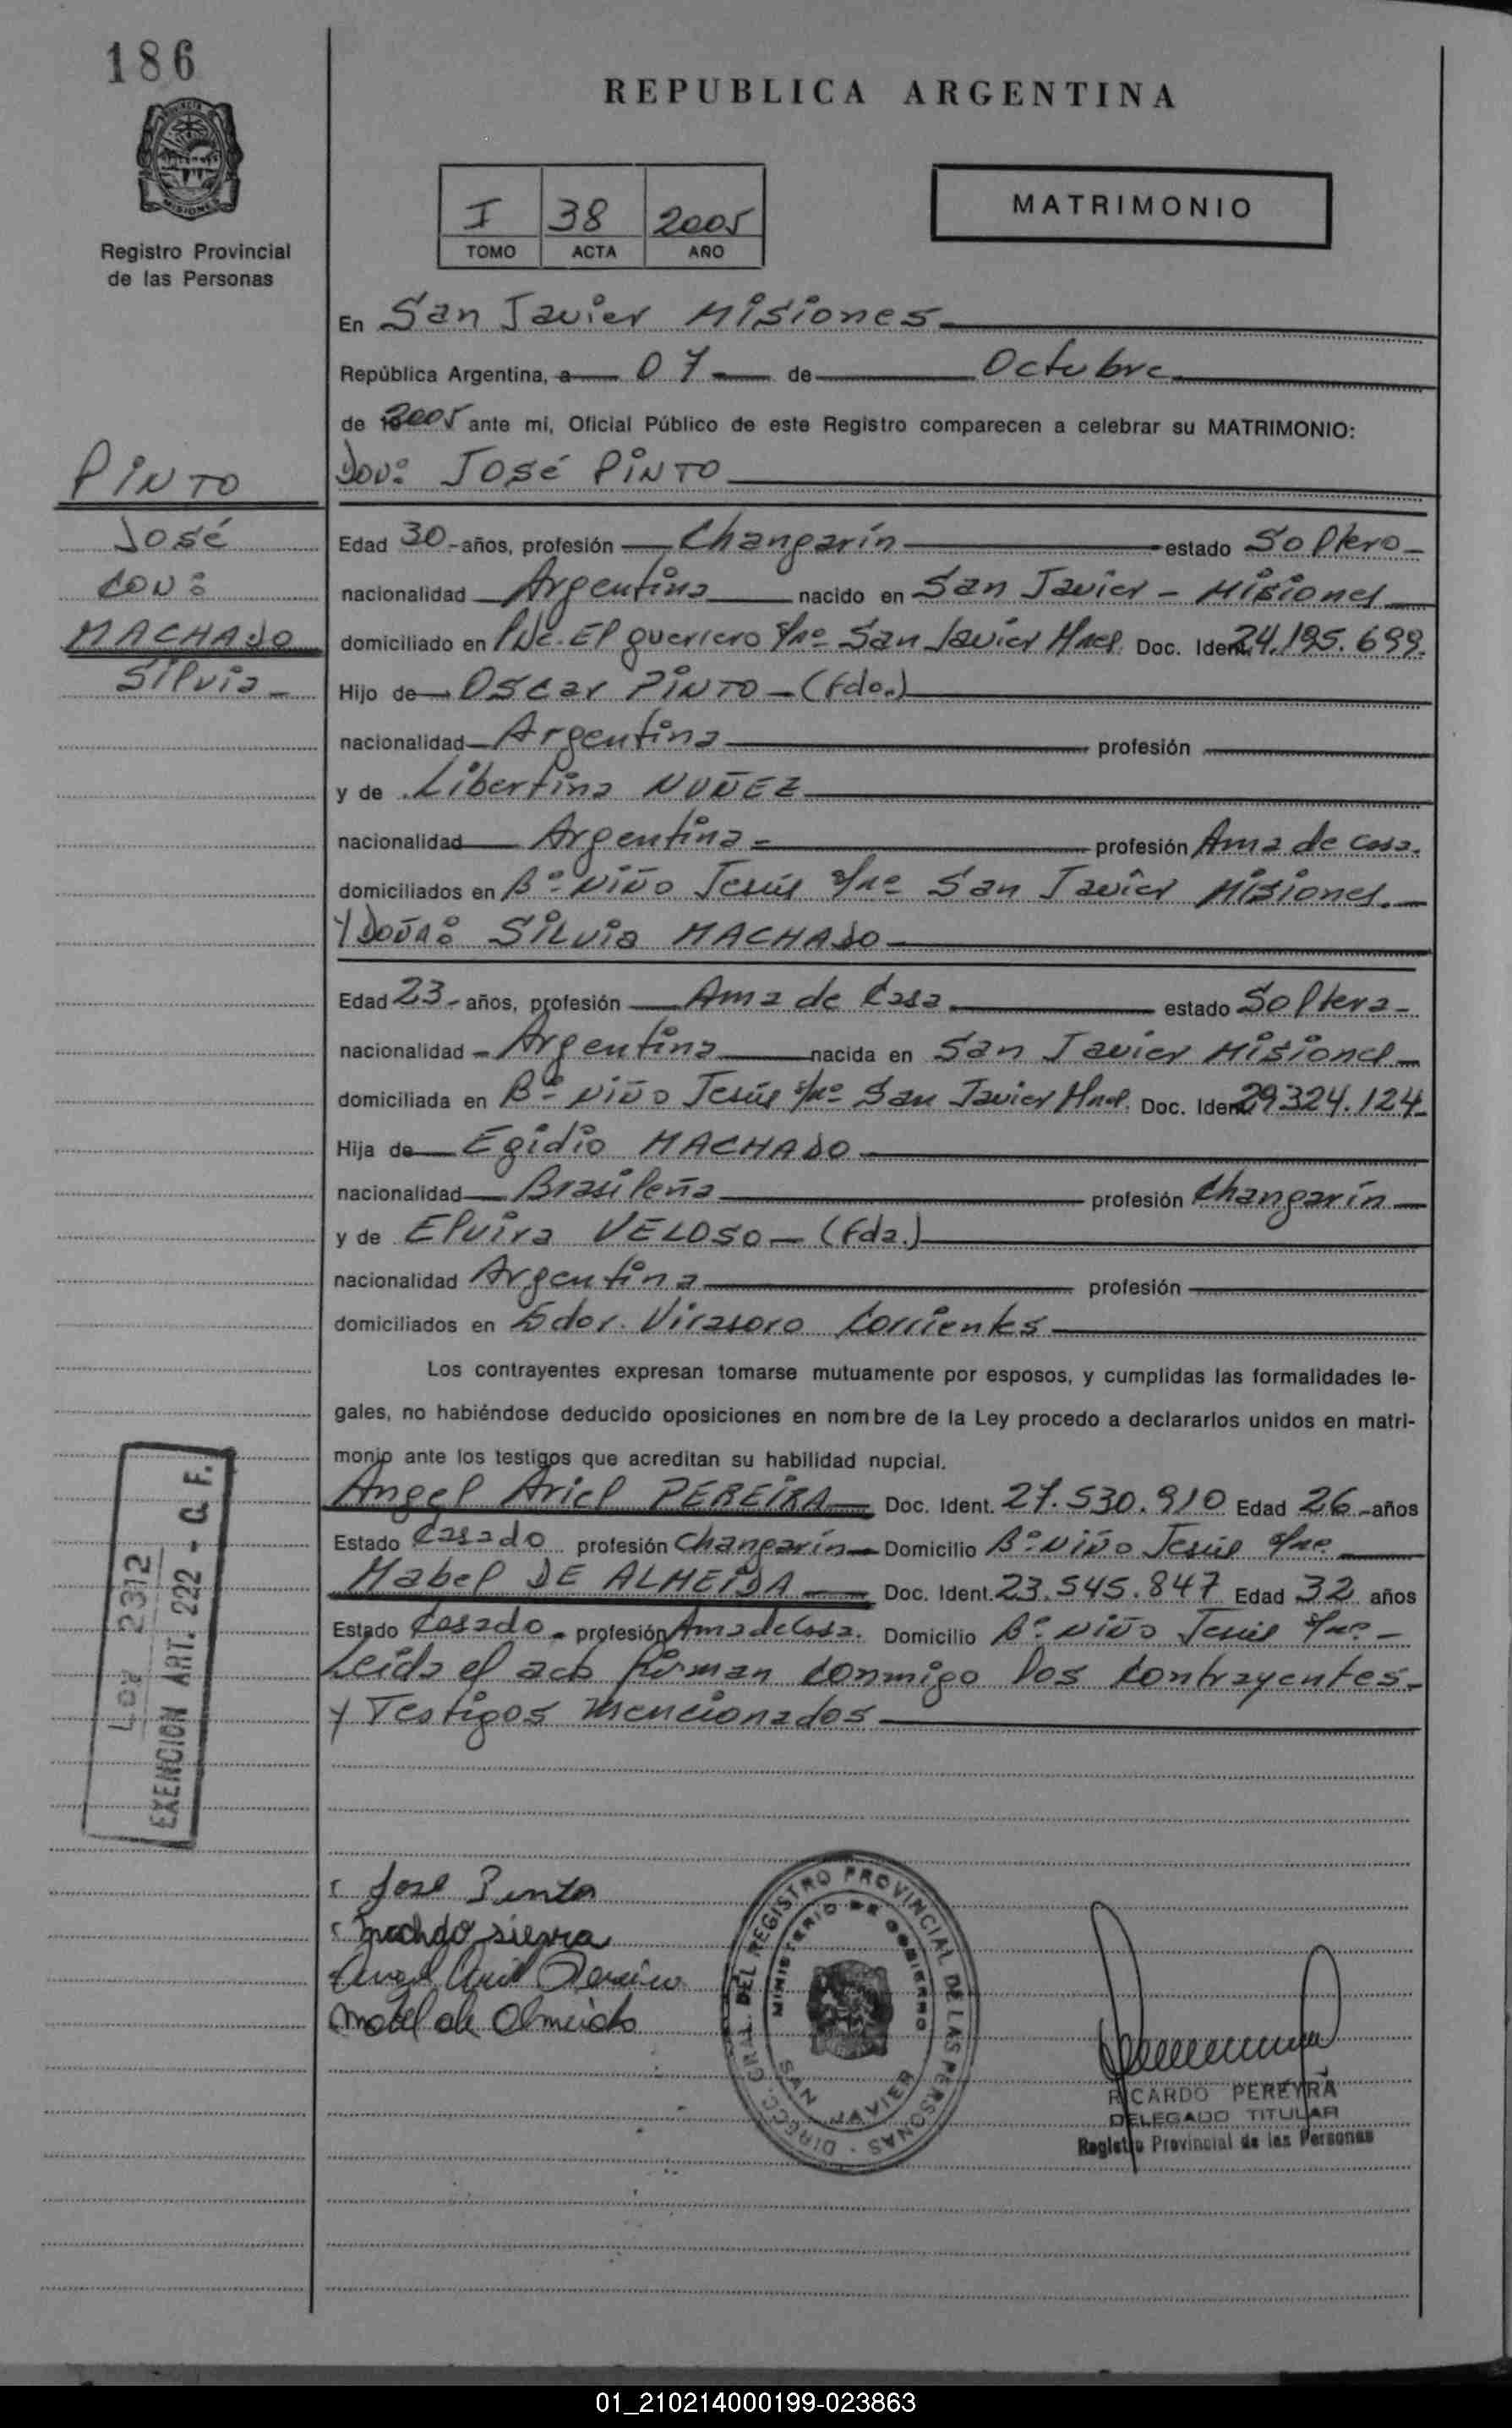 186
REPUBLICA ARGENTINA
MISIONES
Registro Provincial
de las Personas
I 38 2005
TOMO ACTA AÑO
MATRIMONIO
En San Javier Misiones
República Argentina, a 07 de Octubre
de 2005 ante mi, Oficial Público de este Registro comparecen a celebrar su MATRIMONIO:
PINTO
José
CON:
MACHADO
Silvia
DON: José PINTO
Edad 30 años, profesión Changarín estado Soltero
nacionalidad Argentina nacido en San Javier - Misiones
domiciliado en Pje. El guerrero s/nº San Javier Mnes. Doc. Ident. 24.195.699.
Hijo de Oscar PINTO - (fdo.)
nacionalidad Argentina profesión
y de Libertina NUÑEZ
nacionalidad Argentina profesión Ama de casa.
domiciliados en Bº Niño Jesús s/nº San Javier Misiones.
Y DOÑA: Silvia MACHADO
Edad 23 años, profesión Ama de Casa estado Soltera
nacionalidad Argentina nacida en San Javier Misiones
domiciliada en Bº Niño Jesús s/nº San Javier Mnes. Doc. Ident. 29324.124
Hija de Egidio MACHADO
nacionalidad Brasileña profesión Changarín
y de Elvira VELOSO - (fda.)
nacionalidad Argentina profesión
domiciliados en Gdor. Virasoro Corrientes
Los contrayentes expresan tomarse mutuamente por esposos, y cumplidas las formalidades le-
gales, no habiéndose deducido oposiciones en nombre de la Ley procedo a declararlos unidos en matri-
monio ante los testigos que acreditan su habilidad nupcial.
Angel Ariel PEREIRA Doc. Ident. 27.530.910 Edad 26 años
Estado Casado profesión Changarín Domicilio Bº Niño Jesús s/nº
Mabel DE ALMEIDA Doc. Ident. 23.545.847 Edad 32 años
Estado Casado profesión Ama de Casa. Domicilio Bº Niño Jesús s/nº
Leida el acta firman conmigo los contrayentes
y Testigos mencionados
LEY 2312
EXENCION ART. 222 - C. F.
Jose Pinto
Angel Ariel Pereira
Mabel de Almeida
DIRECC. GRAL. DEL REGISTRO PROVINCIAL DE LAS PERSONAS
MINISTERIO DE GOBIERNO
SAN JAVIER
RICARDO PEREYRA
DELEGADO TITULAR
Registro Provincial de las Personas
01_210214000199-023863